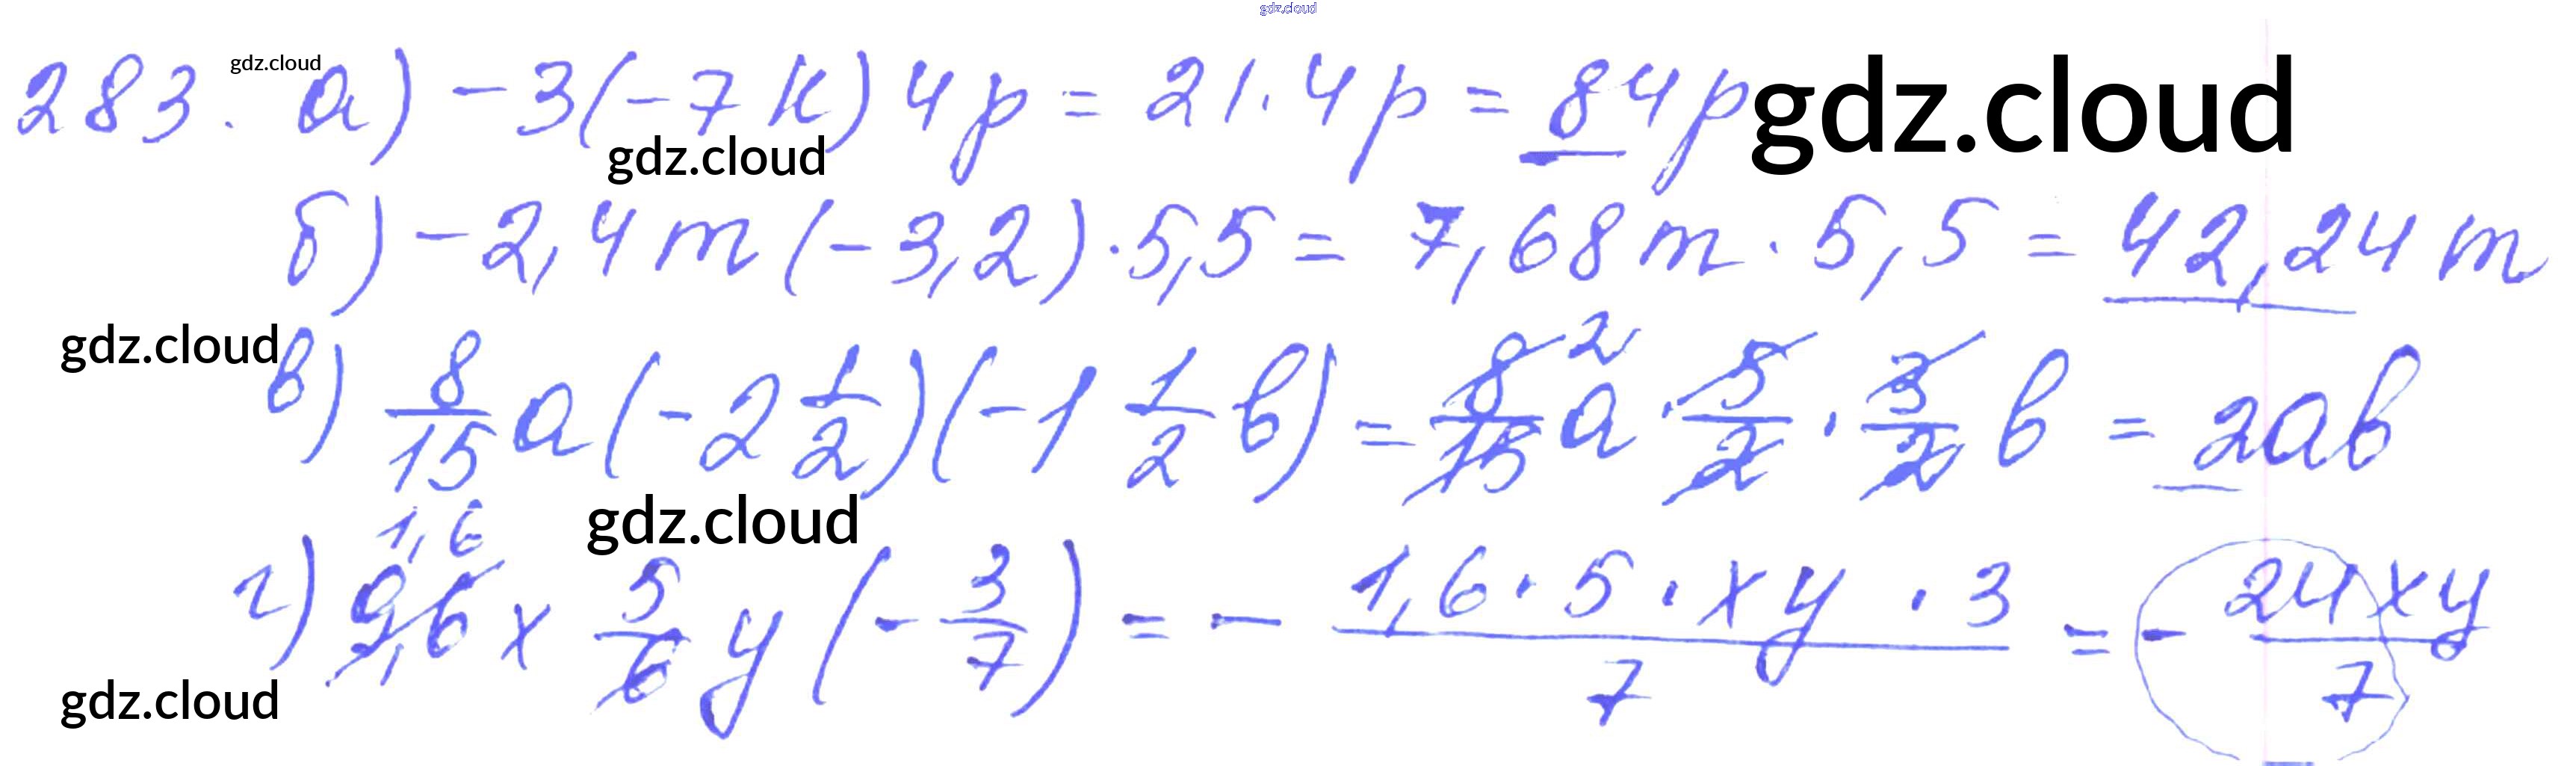 gdz.cloud
283. gdz.cloud а) -3(-7k)4p = 21·4p = 84p gdz.cloud
gdz.cloud
б) -2,4m(-3,2)·5,5 = 7,68m·5,5 = 42,24m
gdz.cloud в) 8/15 a(-2 1/2)(-1 1/2 b) = 8/15 2 a · 5/2 · 3/2 b = 2ab
gdz.cloud
1,6
г) 9,6 x 5/6 y (-3/7) = - 1,6·5·xy·3/7 = - 24xy/7
gdz.cloud